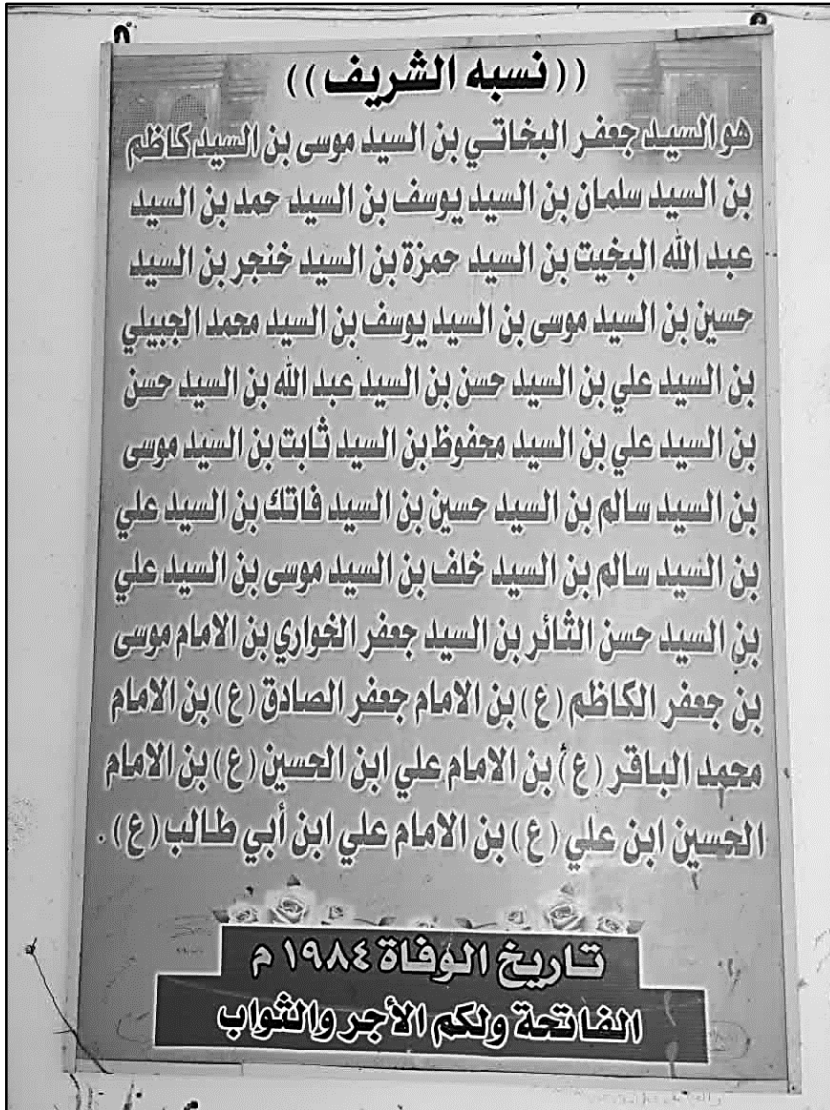 ((نسبه الشريف))
هو السيد جعفر البخاتي بن السيد موسى بن السيد كاظم
بن السيد سلمان بن السيد يوسف بن السيد حمد بن السيد
عبد الله البخيت بن السيد حمزة بن السيد خنجر بن السيد
حسين بن السيد موسى بن السيد يوسف بن السيد محمد الجبيلي
بن السيد علي بن السيد حسن بن السيد عبد الله بن السيد حسن
بن السيد علي بن السيد محفوظ بن السيد ثابت بن السيد موسى
بن السيد سالم بن السيد حسين بن السيد فاتك بن السيد علي
بن السيد سالم بن السيد خلف بن السيد موسى بن السيد علي
بن السيد حسن الثائر بن السيد جعفر الخواري بن الامام موسى
بن جعفر الكاظم (ع) بن الامام جعفر الصادق (ع) بن الامام
محمد الباقر (ع) بن الامام علي ابن الحسين (ع) بن الامام
الحسين ابن علي (ع) بن الامام علي ابن أبي طالب (ع).
تاريخ الوفاة ١٩٨٤ م
الفاتحة ولكم الأجر والثواب